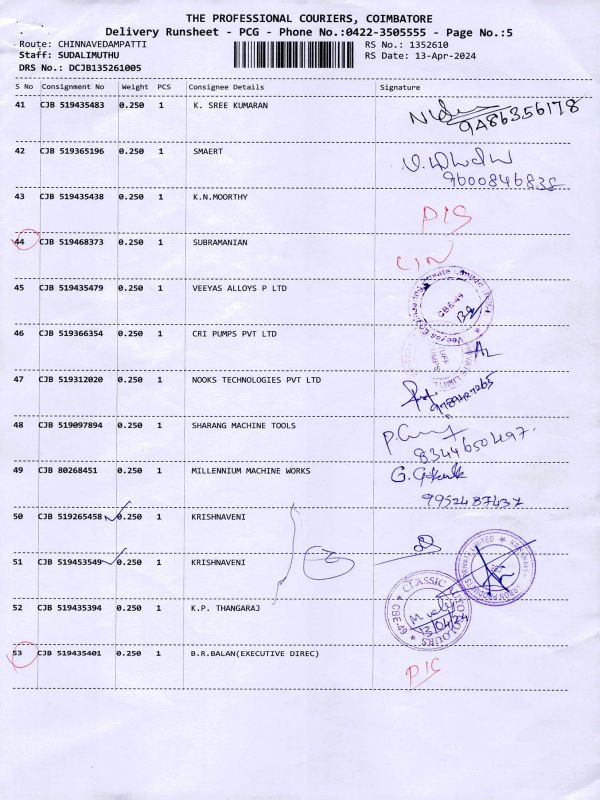 THE PROFESSIONAL COURIERS, COIMBATORE
Delivery Runsheet - PCG - Phone No.:0422-3505555 - Page No.:5
Route: CHINNAVEDAMPATTI RS No.: 1352610
Staff: SUDALIMUTHU RS Date: 13-Apr-2024
DRS No.: DCJB135261005
S No Consignment No Weight PCS Consignee Details Signature
41 CJB 519435483 0.250 1 K. SREE KUMARAN
9486356178
42 CJB 519365196 0.250 1 SMAERT
9600846838
43 CJB 519435438 0.250 1 K.N.MOORTHY
44 CJB 519468373 0.250 1 SUBRAMANIAN
45 CJB 519435479 0.250 1 VEEYAS ALLOYS P LTD
CBE-49
46 CJB 519366354 0.250 1 CRI PUMPS PVT LTD
47 CJB 519312020 0.250 1 NOOKS TECHNOLOGIES PVT LTD
48 CJB 519097894 0.250 1 SHARANG MACHINE TOOLS
8344650497
49 CJB 80268451 0.250 1 MILLENNIUM MACHINE WORKS
9952487437
50 CJB 519265458 0.250 1 KRISHNAVENI
51 CJB 519453549 0.250 1 KRISHNAVENI
52 CJB 519435394 0.250 1 K.P. THANGARAJ
CLASSIC COLOURS CBE-49
13/04/24
53 CJB 519435401 0.250 1 B.R.BALAN(EXECUTIVE DIREC)